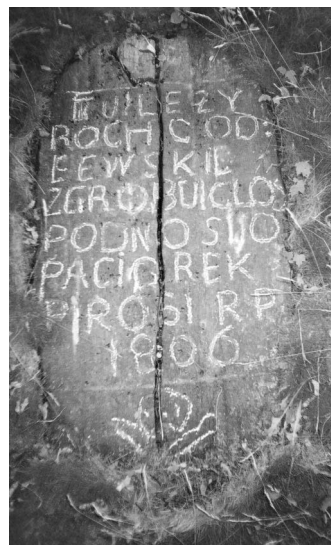 TU LEZY
ROCH GOD
EEWSKIE
ZGROBU IC LOS
PODNOSWO
PACIOREK
PROSI R P
1806